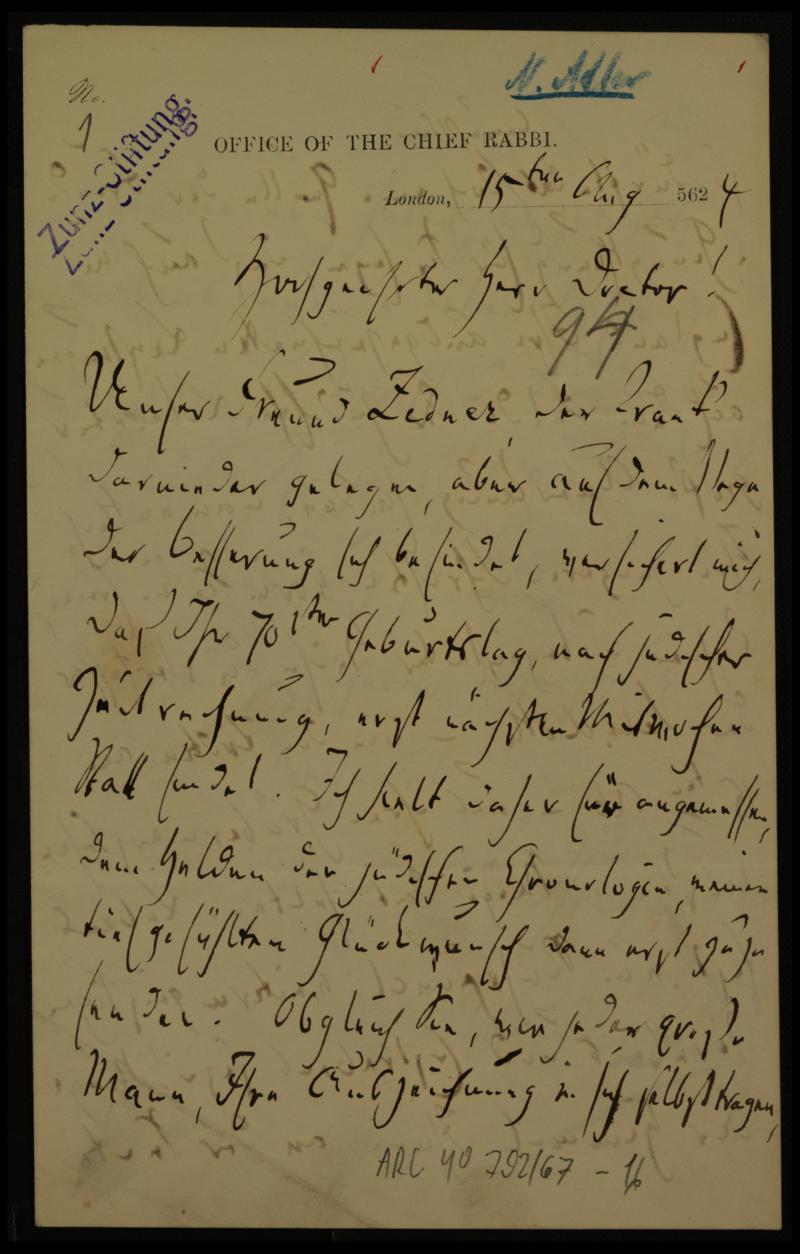 N. Adler
No.
1
Zunz-Stiftung.
OFFICE OF THE CHIEF RABBI.
London, 15ten Aug 5624
Hochgeehrter Herr Doctor!
94
Unser Freund Zedner, der krank
darnieder gelegen, aber auf dem Wege
der Besserung sich befindet, versichert mich,
daß Ihr 70ster Geburtstag, nach jüdischer
Zeitrechnung, erst nächsten Mittwochen
Statt findet. Ich halt daher für angemessen,
dem Helden der jüdischen Chronologie, meinen
tiefgefühlten Glückwunsch dann erst zuzu
senden. Obgleich Sie, wie jeder große
Mann, Ihre Auszeichnung in sich selbst tragen,
ARC 4º 792/67 - 16